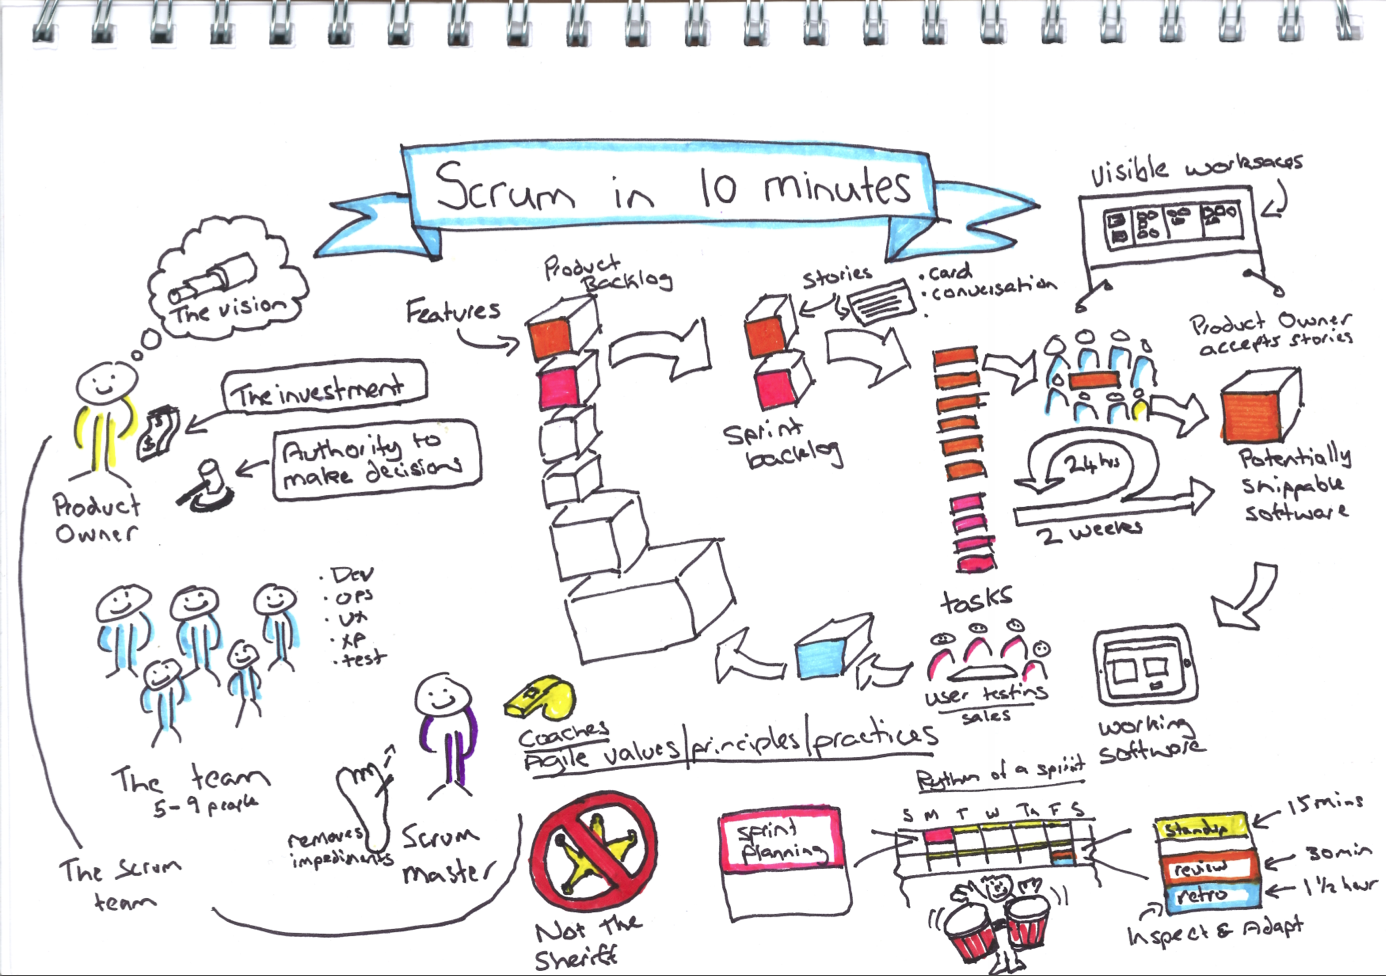 Scrum in 10 minutes
visible worksaces
The vision
Product
Backlog
Features
Stories
• card
• conversation
•
Product Owner
accepts stories
The investment
Authority to
make decisions
Product
Owner
Sprint
backlog
24hrs
2 weeks
Potentially
Shippable
Software
tasks
• Dev
• ops
• ux
• xp
• test
The team
5-9 people
user testing
sales
working
software
Coaches
Agile values/principles/practices
removes
impediments
Scrum
master
The Scrum
team
Not the
Sheriff
sprint
planning
Rythm of a sprint
S M T W Th F S
standup
review
retro
15 mins
30 min
1 ½ hour
Inspect & Adapt